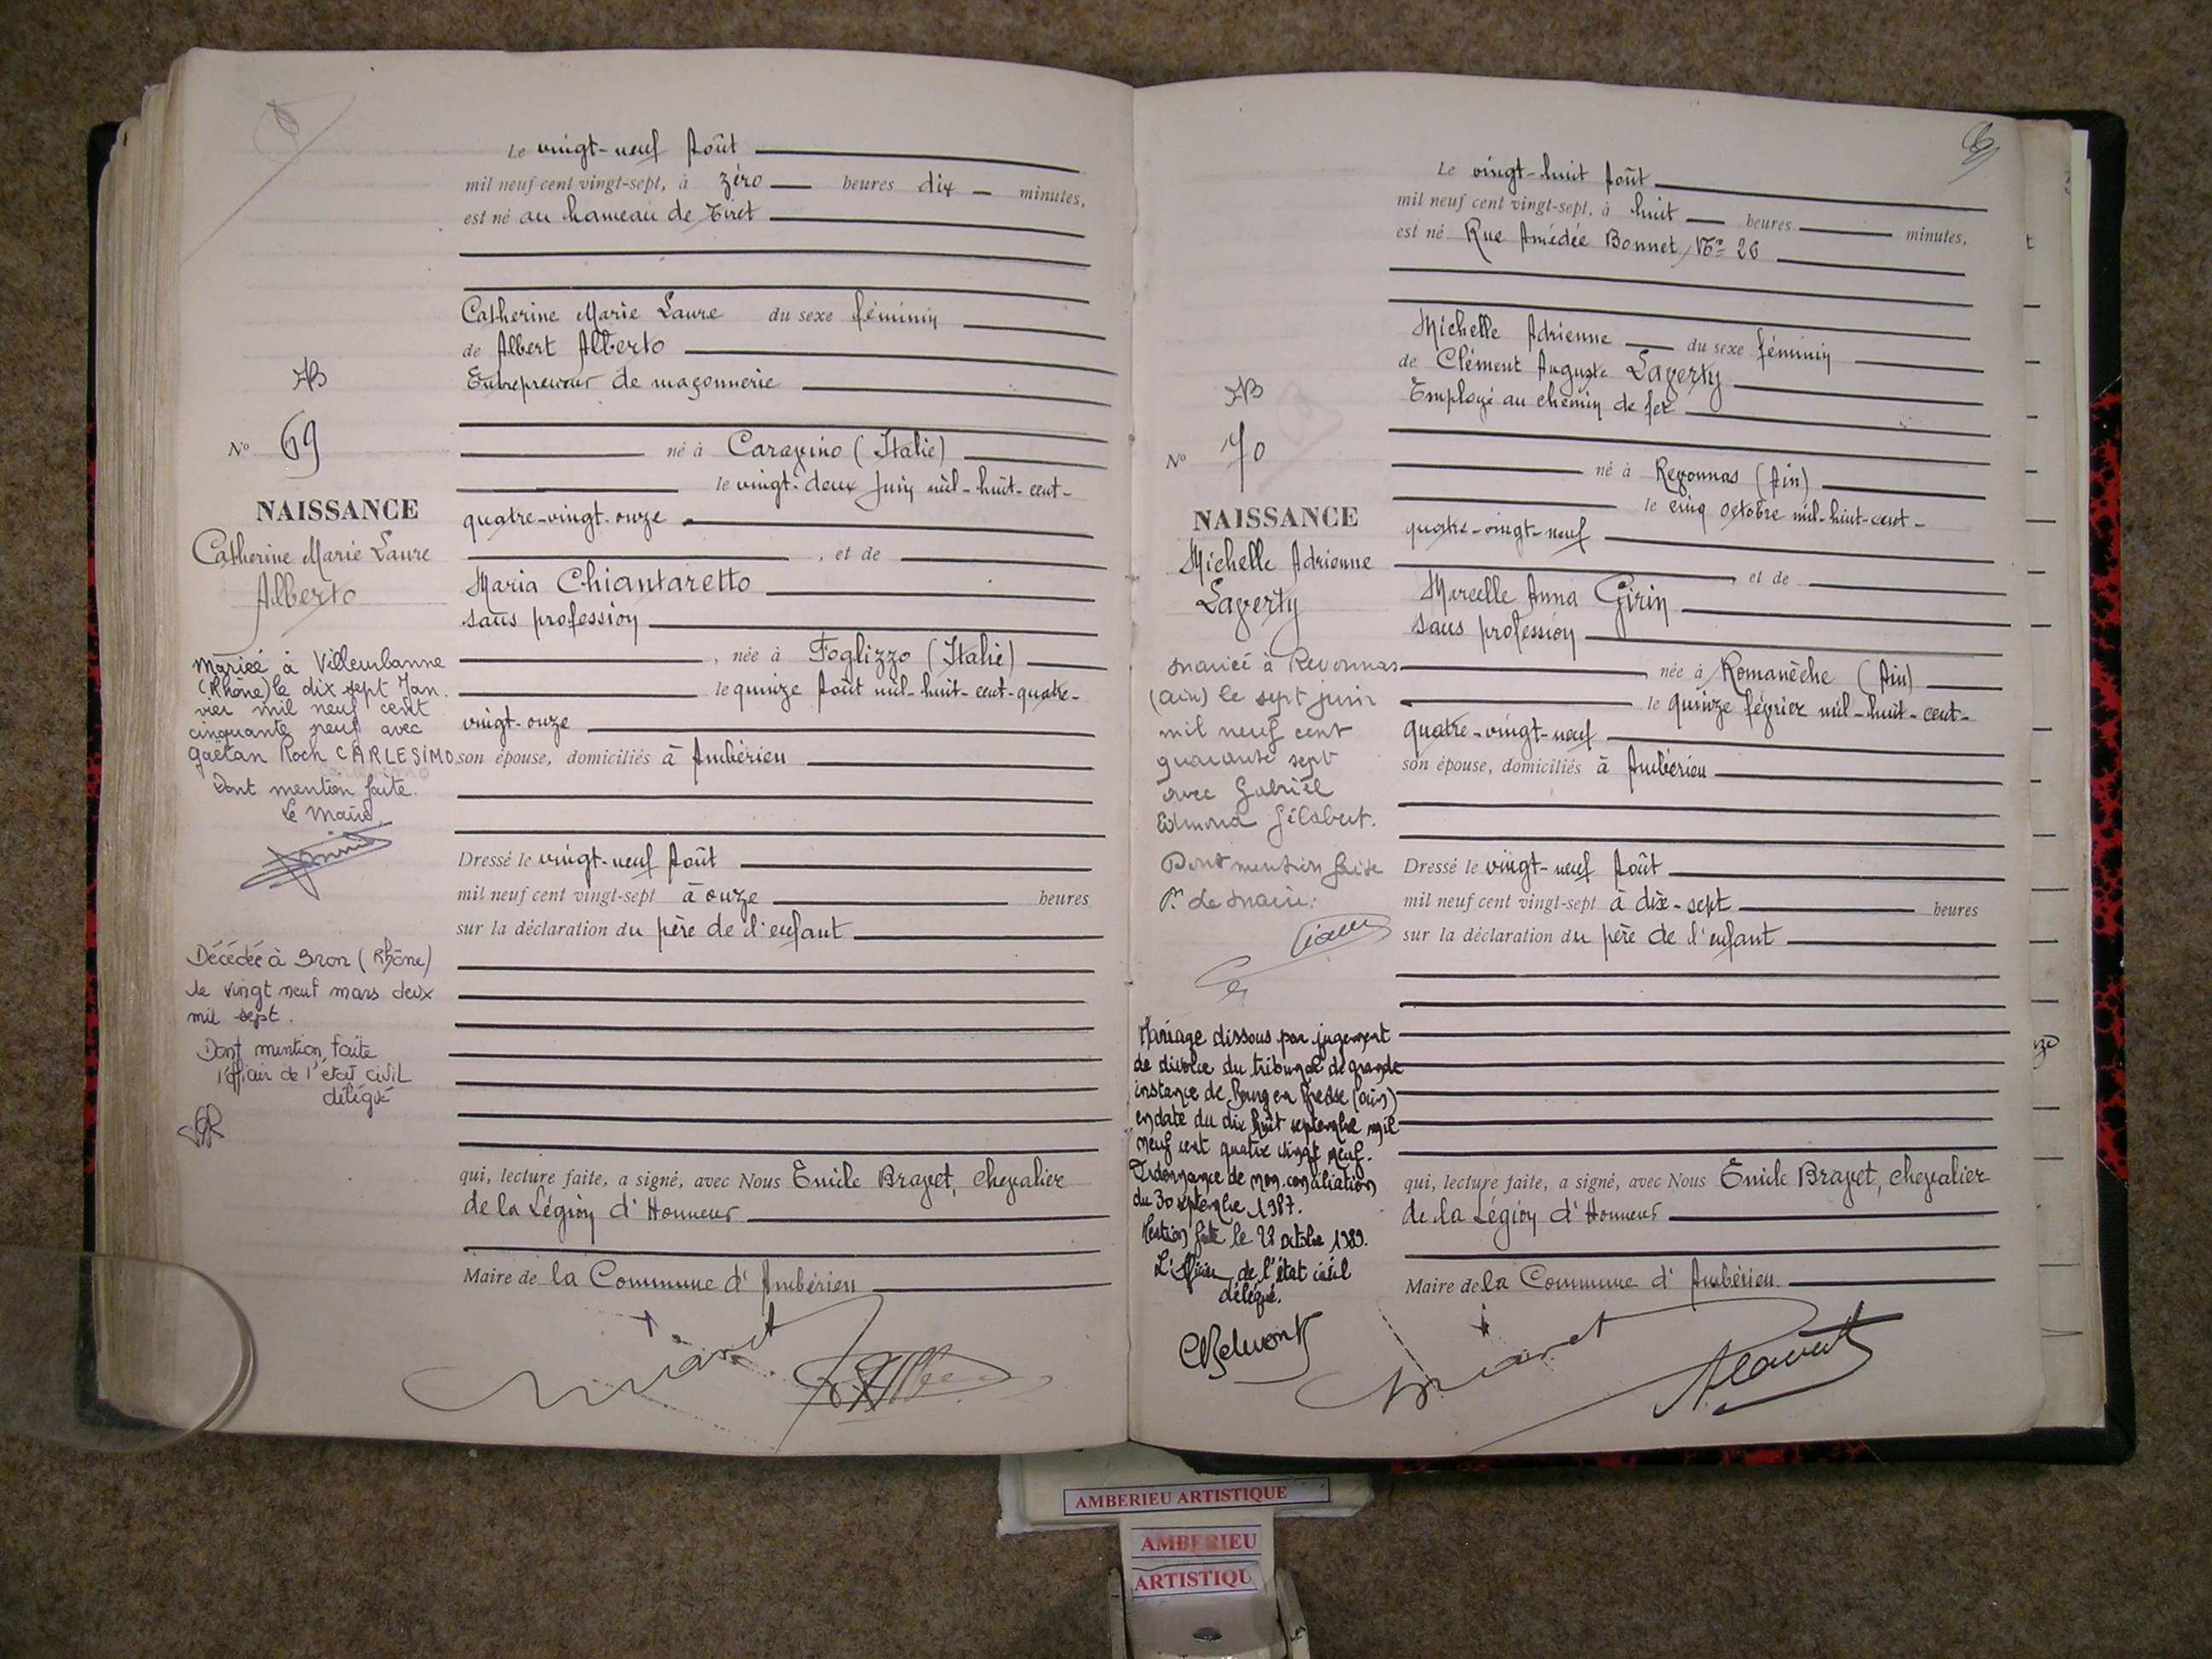 Le vingt-neuf Août
mil neuf cent vingt-sept, à zéro heures dix minutes,
est né au hameau de Tiret
Catherine Marie Laure du sexe féminin
de Albert Alberto
Entrepreneur de maçonnerie
né à Caravino (Italie)
le vingt-deux Juin mil-huit-cent-
quatre-vingt-onze
, et de
Maria Chiantaretto
sans profession
, née à Foglizzo (Italie)
le quinze Août mil-huit-cent-quatre-
vingt-onze
son épouse, domiciliés à Ambérieu
Dressé le vingt-neuf Août
mil neuf cent vingt-sept à onze heures
sur la déclaration du père de l'enfant
qui, lecture faite, a signé, avec Nous Emile Bravet, chevalier
de la Légion d'Honneur
Maire de la Commune d'Ambérieu
No 69
NAISSANCE
Catherine Marie Laure
Alberto
Mariée à Villeurbanne
(Rhône) le dix sept Jan.
vier mil neuf cent
cinquante neuf avec
Gaëtan Roch CARLESIMO.
Dont mention faite.
Le Maire,
Décédée à Bron (Rhône)
le vingt neuf mars deux
mil sept.
Dont mention faite
l'officier de l'etat civil
délégué
Le vingt-huit Août
mil neuf cent vingt-sept, à huit heures minutes,
est né Rue Amédée Bonnet, No 26
Michelle Adrienne du sexe féminin
de Clément Auguste Laverty
Employé au chemin de fer
né à Revonnas (Ain)
le cinq octobre mil-huit-cent-
quatre-vingt-neuf
et de
Marcelle Anna Girin
sans profession
née à Romanèche (Ain)
le quinze février mil-huit-cent-
quatre-vingt-neuf
son épouse, domiciliés à Ambérieu
Dressé le vingt-neuf Août
mil neuf cent vingt-sept à dix-sept heures
sur la déclaration du père de l'enfant
qui, lecture faite, a signé, avec Nous Emile Bravet, chevalier
de la Légion d'Honneur
Maire de la Commune d'Ambérieu
No 70
NAISSANCE
Michelle Adrienne
Laverty
Mariée à Revonnas
(Ain) le sept juin
mil neuf cent
quarante sept
avec Gabriel
Edmond Gilabert.
Dont mention faite
Pr le Maire:
Mariage dissous par jugement
de divorce du tribunal de grande
instance de Bourg en Bresse (ain)
en date du dix huit septembre mil
neuf cent quatre vingt neuf.
Ordonnance de non conciliation
du 30 septembre 1987.
Mention faite le 28 octobre 1989.
L'Officier de l'état civil
délégué.
AMBERIEU ARTISTIQUE
AMBERIEU
ARTISTIQU